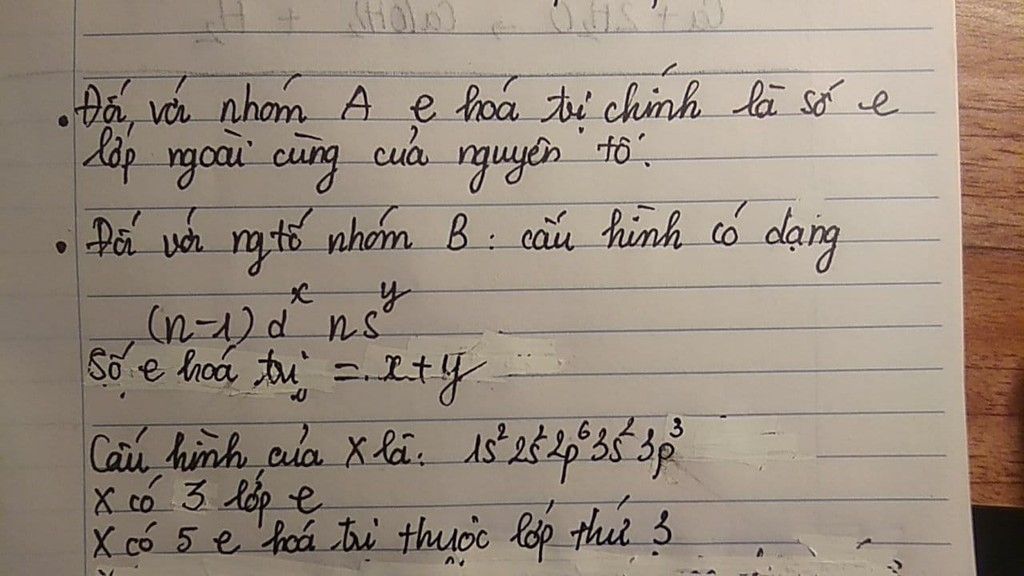 . Đối với nhóm A e hoá trị chính là số e
lớp ngoài cùng của nguyên tố.
. Đối với ngtố nhóm B : cấu hình có dạng
(n-1)dˣ nsʸ
Số e hoá trị = x+y
Cấu hình của X là: 1s² 2s² 2p⁶ 3s² 3p³
X có 3 lớp e
X có 5 e hoá trị thuộc lớp thứ 3